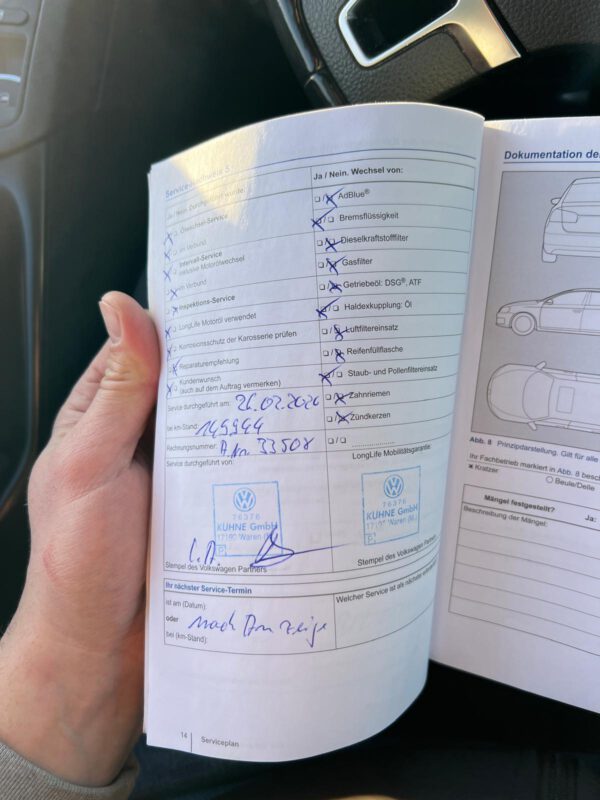 Ja / Nein. Wechsel von:
Ölwechsel-Service
im Verbund
Intervall-Service
inklusive Motorölwechsel
im Verbund
Inspektions-Service
LongLife Motoröl verwendet
Korrosionsschutz der Karosserie prüfen
Reparaturempfehlung
Kundenwunsch
(auch auf dem Auftrag vermerken)
Service durchgeführt am: 26.02.2020
bei km-Stand: 145944
Rechnungsnummer: 33508
Service durchgeführt von:
AdBlue®
Bremsflüssigkeit
Dieselkraftstofffilter
Gasfilter
Getriebeöl: DSG®, ATF
Haldexkupplung: Öl
Luftfiltereinsatz
Reifenfüllflasche
Staub- und Pollenfiltereinsatz
Zahnriemen
Zündkerzen
LongLife Mobilitätsgarantie:
76376
KUHNE GmbH
17192 Waren (M.)
Stempel des Volkswagen Partners
76376
KUHNE GmbH
Waren (M.)
Stempel des Volkswagen Partners
Ihr nächster Service-Termin
ist am (Datum):
oder nach Anzeige
bei (km-Stand):
Welcher Service ist als nächste
14 Serviceplan
Dokumentation de
Abb. 8 Prinzipdarstellung. Gilt für alle
Ihr Fachbetrieb markiert in Abb. 8 besc
Kratzer Beule/Delle
Mängel festgestellt? Ja:
Beschreibung der Mängel: